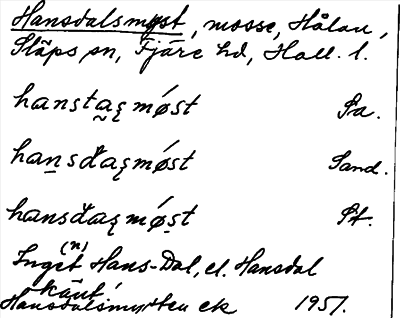 Hansdalsmyst, mosse, Hålan,
Släps sn, Fjäre hd, Hall. l.
hanstaȿmǿst Pa.
hansđaȿmǿst Sand.
hansđaȿmǿst Pt.
Inget (n) Hans-Dal, el. Hansdal
känt!
Hansdalsmysten ek 1951.